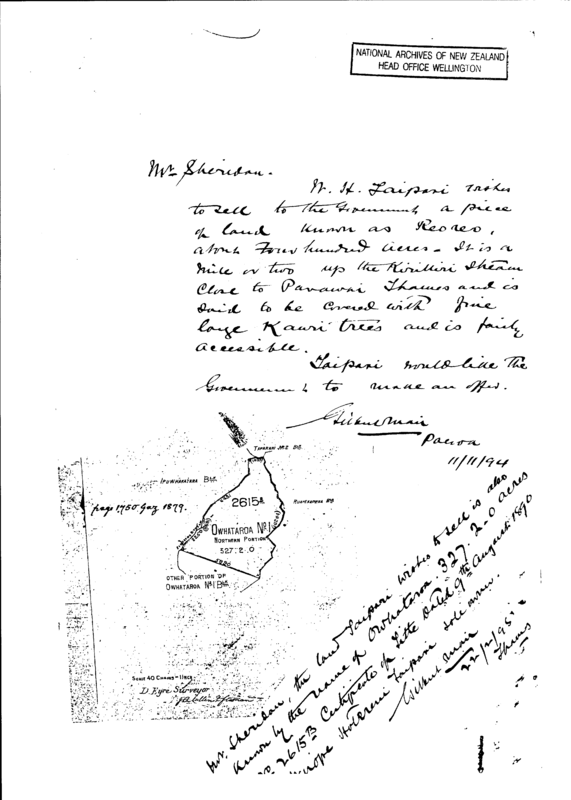 NATIONAL ARCHIVES OF NEW ZEALAND
HEAD OFFICE WELLINGTON
Mr Sheridan.
W. H. Taipari wishes
to sell to the Government a piece
of land known as Reoreo,
about Four hundred acres - It is a
mile or two up the Kirikiri Stream
Close to Parawai Thames and is
said to be covered with fine
large Kauri trees and is fairly
accessible.
Taipari would like the
Government to make an offer.
Gilbert Mair
Paeroa
11/11/94
Ipuwhataroa Blk.
page 1750 Gaz 1879.
2615
Owhataroa No 1
Northern Portion
527:2.0
OTHER PORTION OF
Owhataroa No 1 Blk.
Scale 40 Chains = 1 Inch
D. Eyre Surveyor
Mr. Sheridan, the land Taipari wishes to sell is also
known by the name of Owhataroa 327. 2-0 acres
2615B Certificate of Title Dated 9th August 1890
Hotereni Taipari sole owner.
Gilbert Mair
22/2/95
Thames